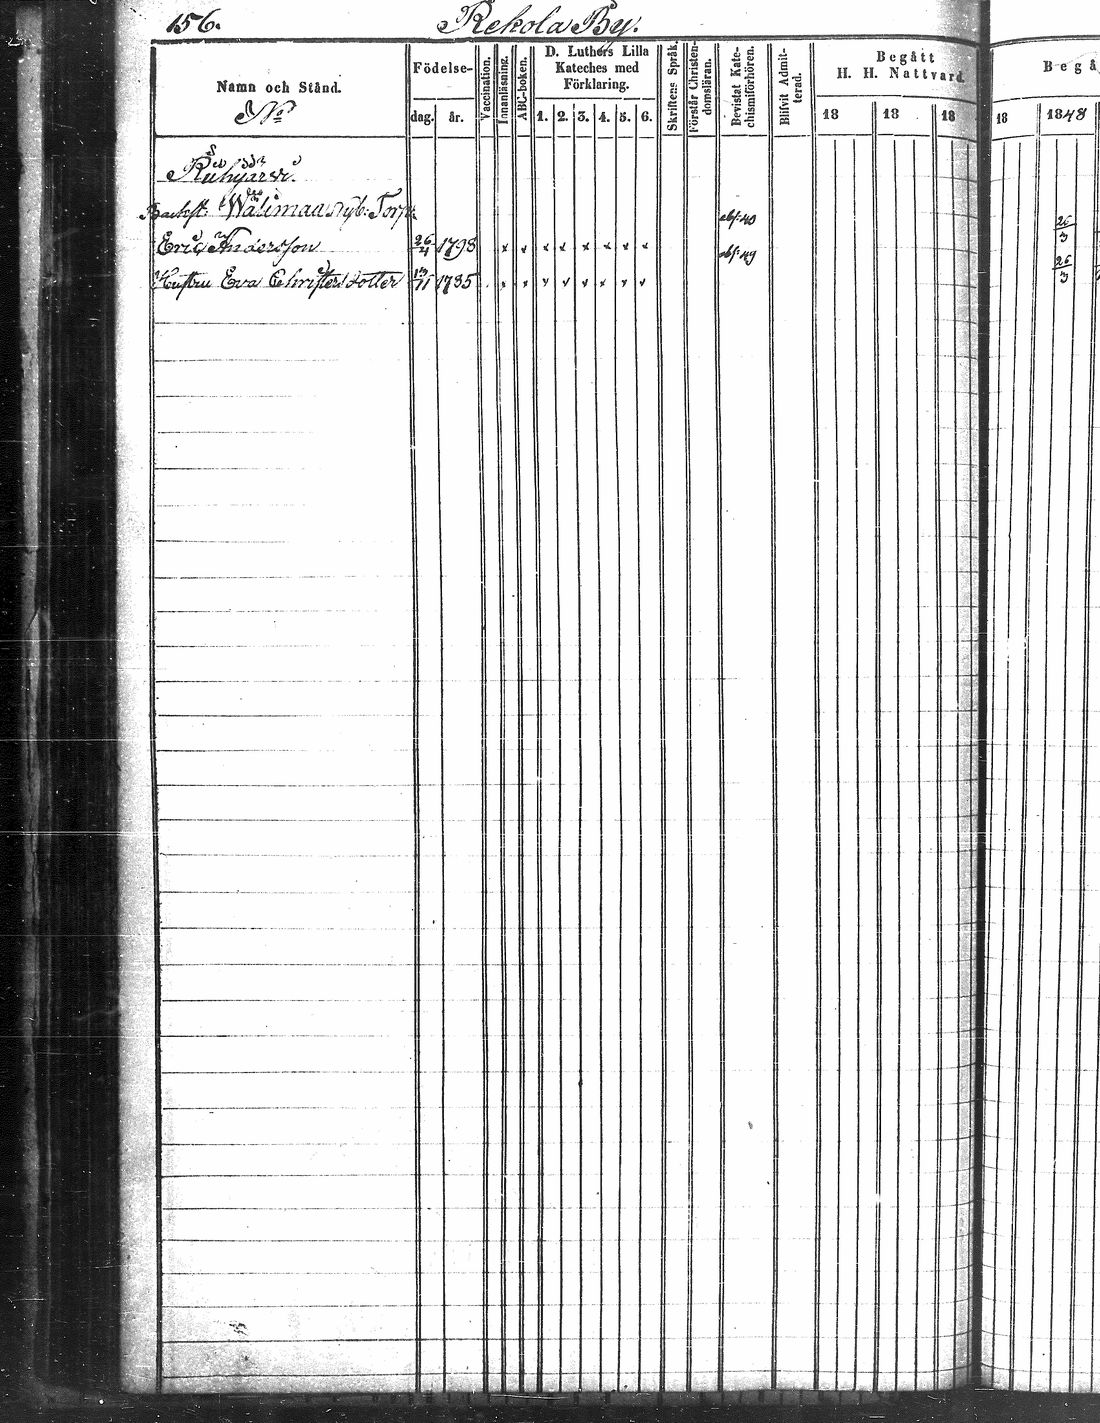 156. Rekola By.
Namn och Stånd.
No
Födelse-
dag. år.
Vaccination.
Innanläsning.
ABC-boken.
D. Luthers Lilla
Kateches med
Förklaring.
1. 2. 3. 4. 5. 6.
Skriftens Språk.
Förstår Christen-
domsläran.
Bevistat Kate-
chismiförhören.
Blifvit Admit-
terad.
Begått
H. H. Nattvard.
18 18 18
Begå
18 1848
Backst.
Eric Andersson 26/4 1798 x x x x x x x x 26/3
Hustru Eva Christersdotter 1785 26/3